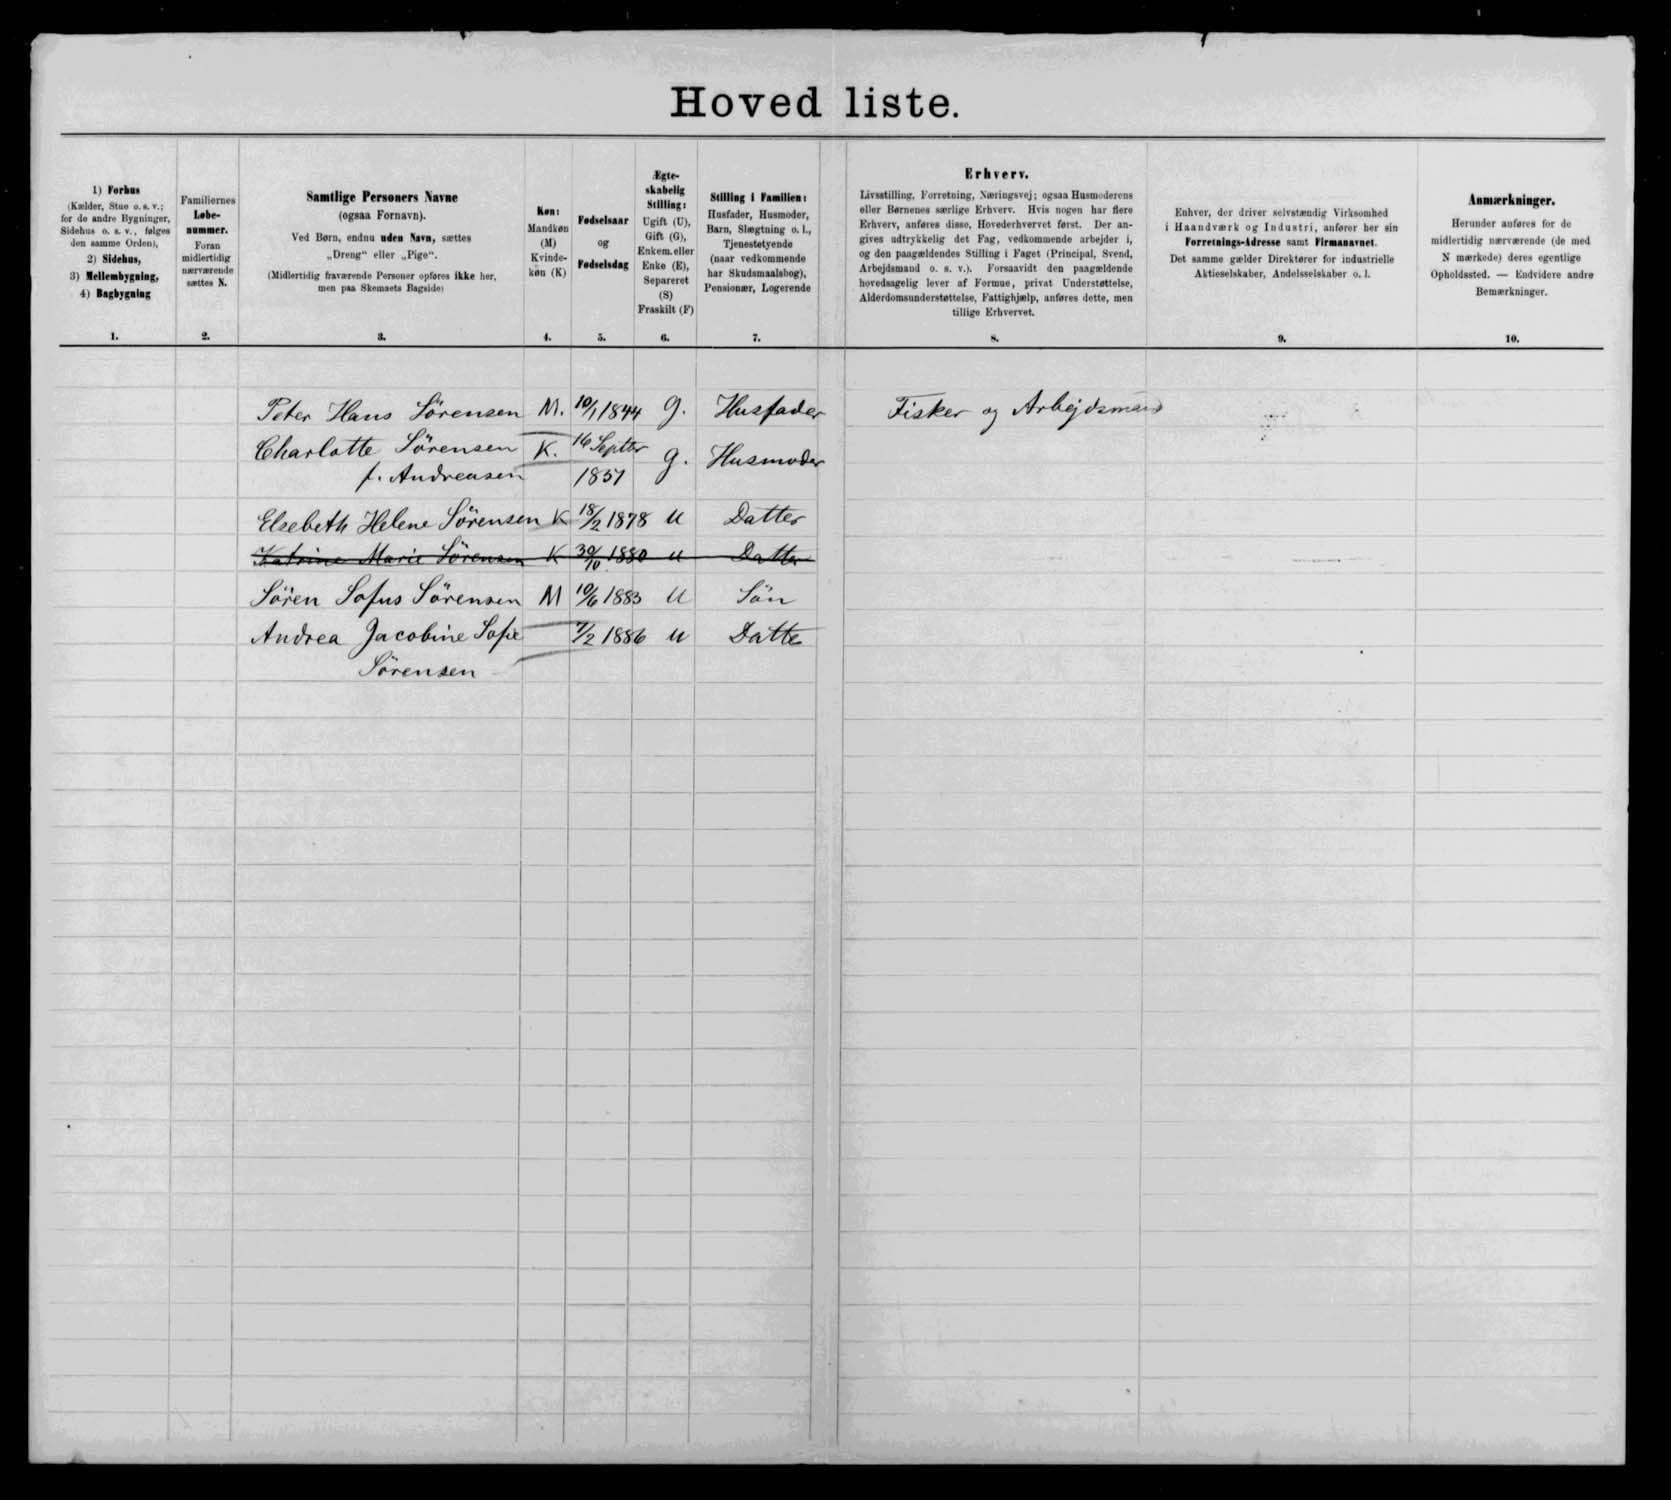 Hoved liste.
1) Forhus
(Kælder, Stue o. s. v.;
for de andre Bygninger,
Sidehus o. s. v., følges
den samme Orden),
2) Sidehus,
3) Mellembygning,
4) Bagbygning
1.
Familiernes
Løbe-
nummer.
Foran
midlertidig
nærværende
sættes N.
2.
Samtlige Personers Navne
(ogsaa Fornavn).
Ved Børn, endnu uden Navn, sættes
„Dreng" eller „Pige".
(Midlertidig fraværende Personer opføres ikke her,
men paa Skemaets Bagside)
3.
Køn:
Mandkøn
(M)
Kvinde-
køn (K)
4.
Fødselsaar
og
Fødselsdag
5.
Ægte-
skabelig
Stilling:
Ugift (U),
Gift (G),
Enkem. eller
Enke (E),
Separeret
(S)
Fraskilt (F)
6.
Stilling i Familien:
Husfader, Husmoder,
Barn, Slægtning o. l.,
Tjenestetyende
(naar vedkommende
har Skudsmaalsbog),
Pensionær, Logerende
7.
Erhverv.
Livsstilling, Forretning, Næringsvej; ogsaa Husmoderens
eller Børnenes særlige Erhverv. Hvis nogen har flere
Erhverv, anføres disse, Hovederhvervet først. Der an-
gives udtrykkelig det Fag, vedkommende arbejder i,
og den paagældendes Stilling i Faget (Principal, Svend,
Arbejdsmand o. s. v.). Forsaavidt den paagældende
hovedsagelig lever af Formue, privat Understøttelse,
Alderdomsunderstøttelse, Fattighjælp, anføres dette, men
tillige Erhvervet.
8.
Enhver, der driver selvstændig Virksomhed
i Haandværk og Industri, anfører her sin
Forretnings-Adresse samt Firmanavnet.
Det samme gælder Direktører for industrielle
Aktieselskaber, Andelsselskaber o. l.
9.
Anmærkninger.
Herunder anføres for de
midlertidig nærværende (de med
N mærkede) deres egentlige
Opholdssted. — Endvidere andre
Bemærkninger.
10.
Peter Hans Sörensen M. 10/1 1844 g. Husfader Fisker og Arbejdsmand
Charlotte Sörensen K. 16 Septbr g. Husmoder
f. Andreasen 1851
Elsebeth Helene Sörensen K 18/2 1878 U Datter
Katrine Marie Sörensen K 30/10 1880 U Datter
Sören Sofus Sörensen M 10/6 1883 U Sön
Andrea Jacobine Sofie 7/2 1886 U Datte
Sörensen